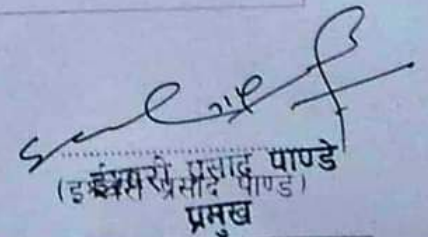 ईश्वरी प्रसाद पाण्डे
(ई प्रसाद पाण्डे)
प्रमुख